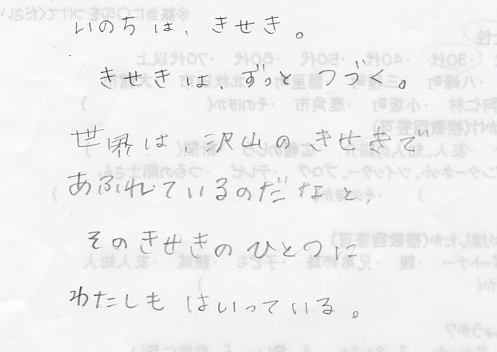 いのちは、きせき。
きせきは、ずっとつづく。
世界は 沢山のきせきで
あふれているのだなと、
そのきせきのひとつに
わたしも はいっている。